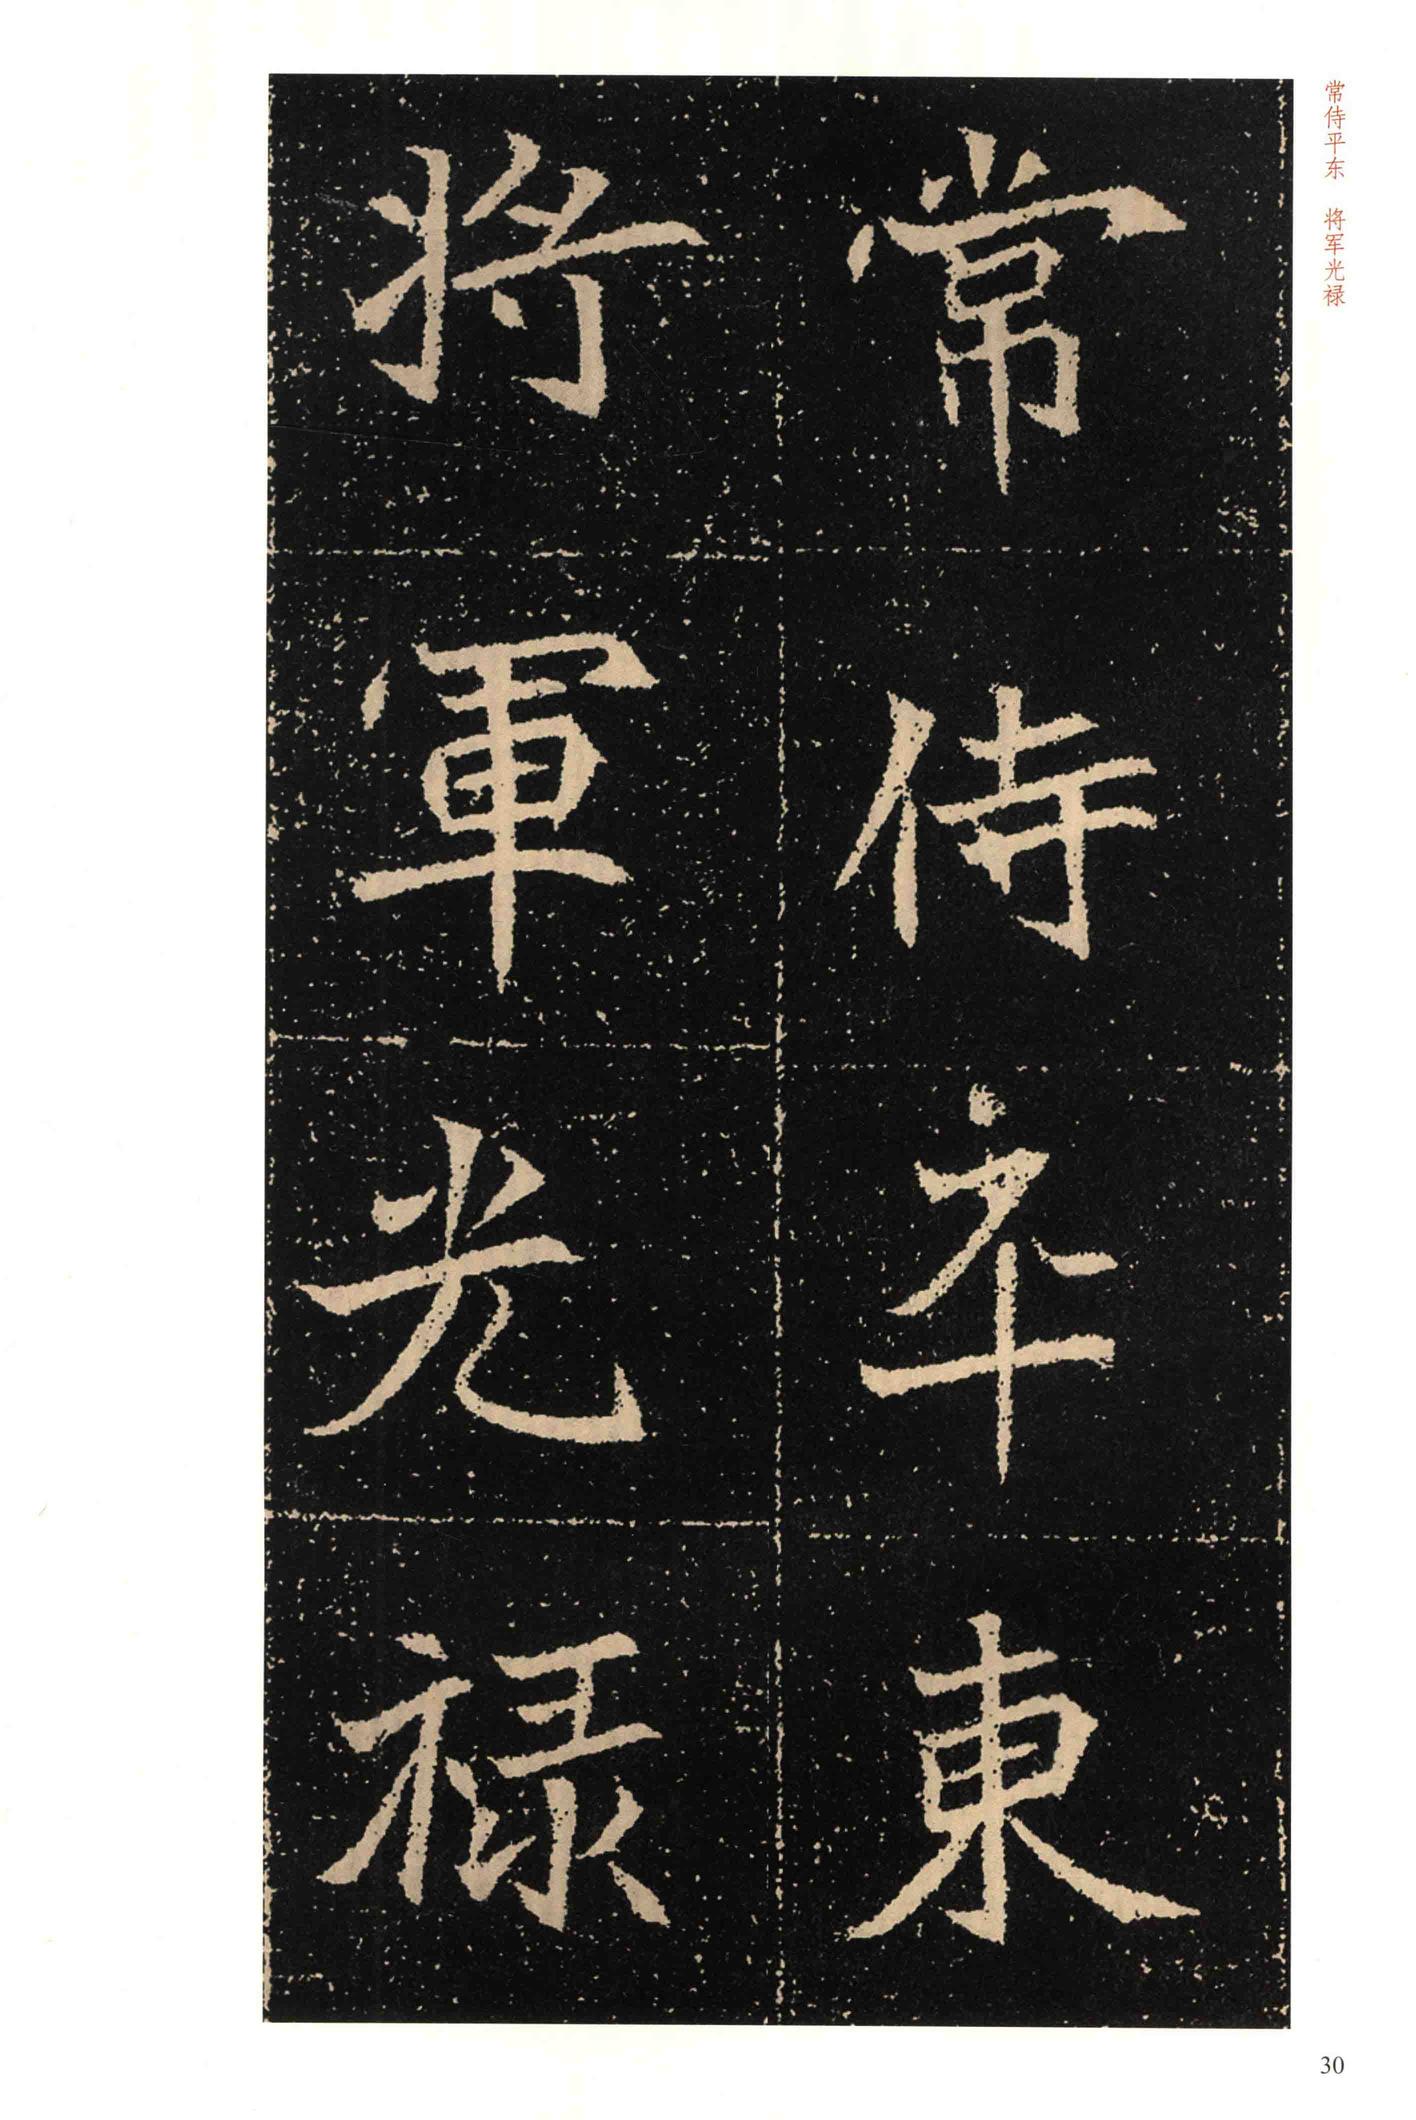 常侍平东 将军光禄
常侍平東
将軍光禄
30